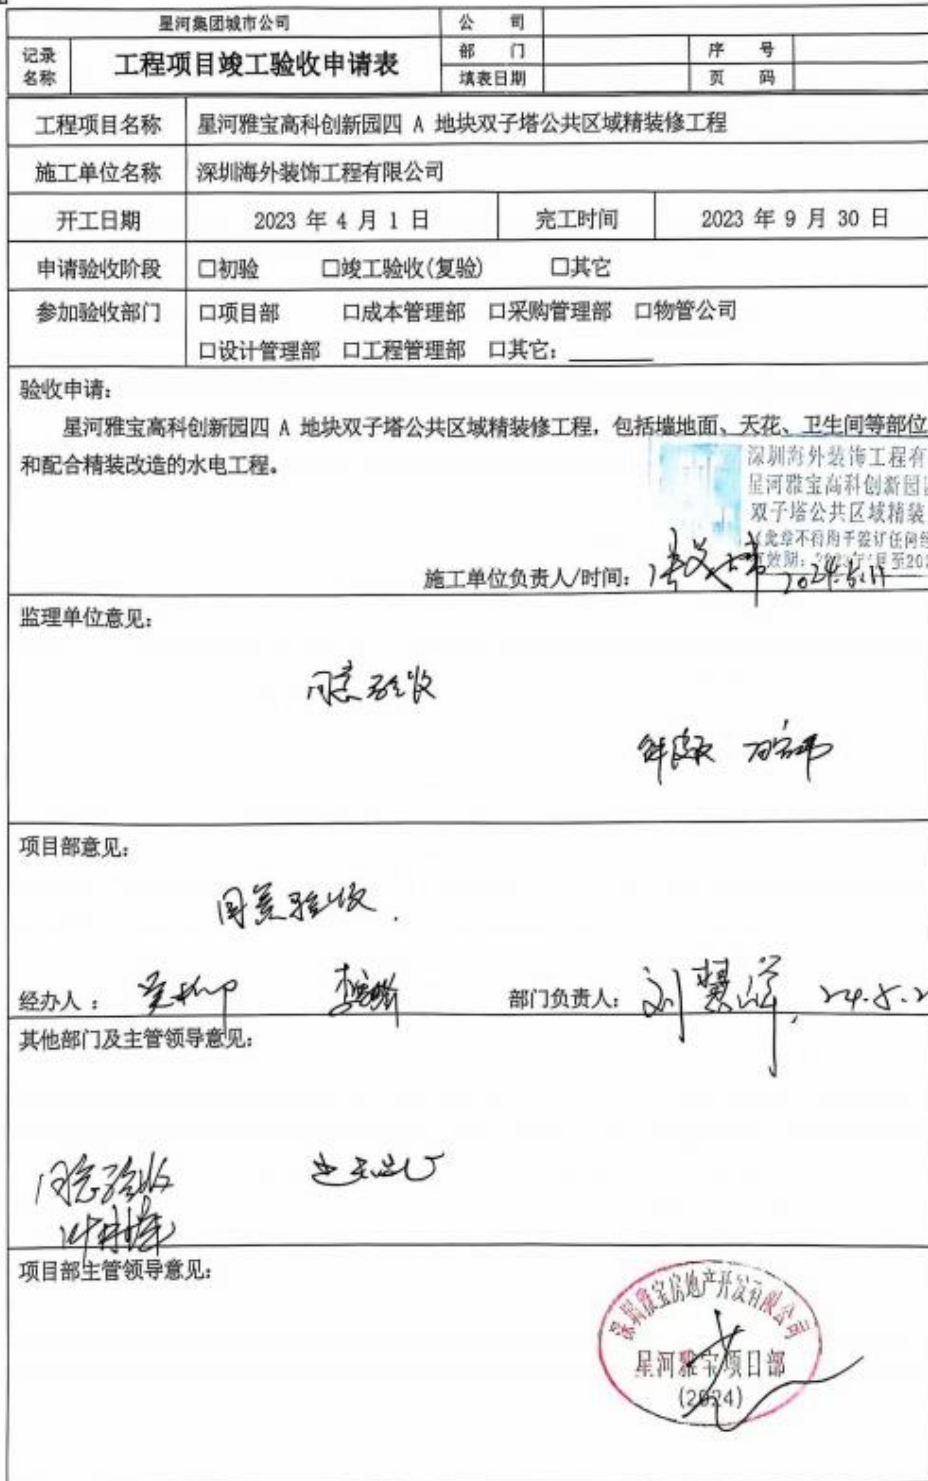 星河集团城市公司
公 司
记录名称
工程项目竣工验收申请表
部 门
序 号
填表日期
页 码
工程项目名称 星河雅宝高科创新园四 A 地块双子塔公共区域精装修工程
施工单位名称 深圳海外装饰工程有限公司
开工日期 2023 年 4 月 1 日 完工时间 2023 年 9 月 30 日
申请验收阶段 □初验 □竣工验收(复验) □其它
参加验收部门 □项目部 □成本管理部 □采购管理部 □物管公司
□设计管理部 □工程管理部 □其它:
验收申请:
星河雅宝高科创新园四 A 地块双子塔公共区域精装修工程,包括墙地面、天花、卫生间等部位
和配合精装改造的水电工程。
深圳海外装饰工程有
星河雅宝高科创新园
双子塔公共区域精装
(此章不得用于签订任何经
施工单位负责人/时间: 2024.5.11
监理单位意见:
同意验收
项目部意见:
同意验收.
经办人: 部门负责人: 刘慧洋 24.5.2
其他部门及主管领导意见:
同意验收
项目部主管领导意见:
深圳雅宝房地产开发有限公司
星河雅宝项目部
(2024)